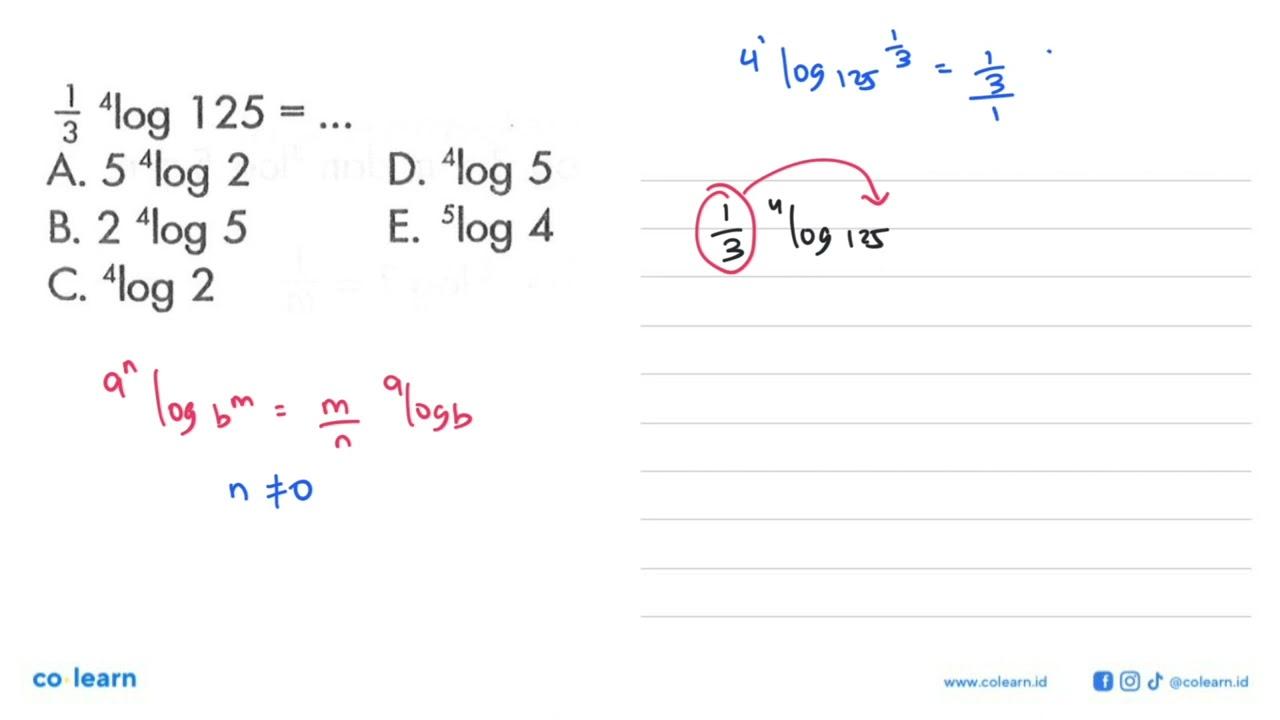 1/3 ⁴log 125 = ...
A. 5 ⁴log 2
D. ⁴log 5
B. 2 ⁴log 5
E. ⁵log 4
C. ⁴log 2
aⁿ log bᵐ = m/n ᵃlog b
n ≠ 0
4¹ log 125^(1/3) = (1/3)/1
1/3 ⁴log 125
co learn
www.colearn.id
@colearn.id